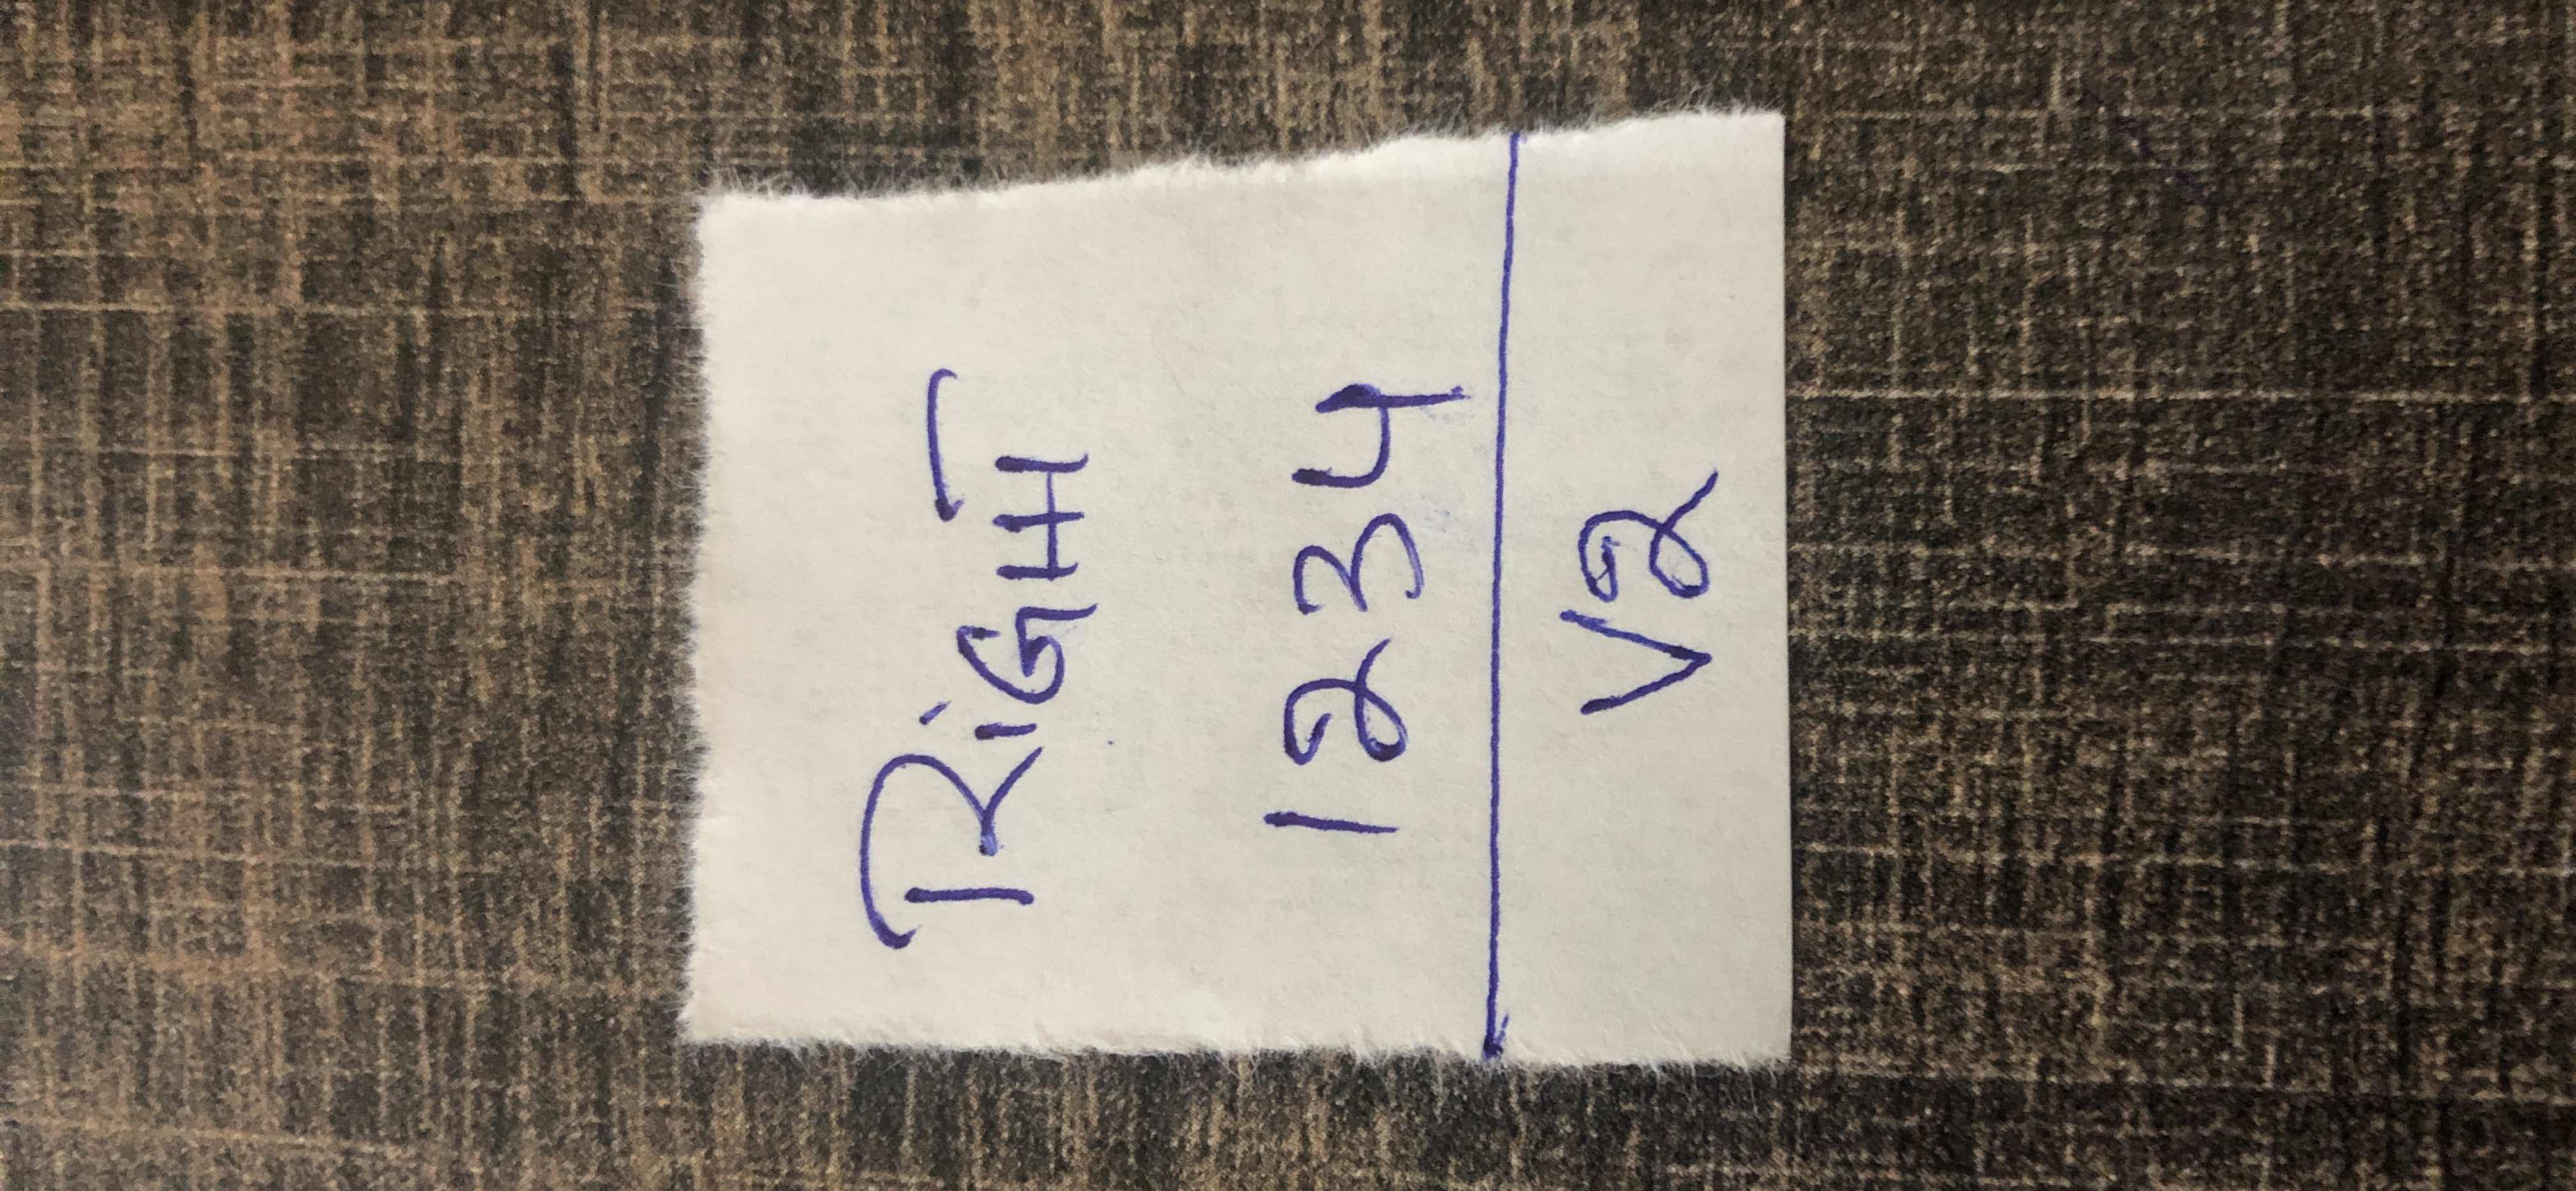 RiGHT
1234
V2